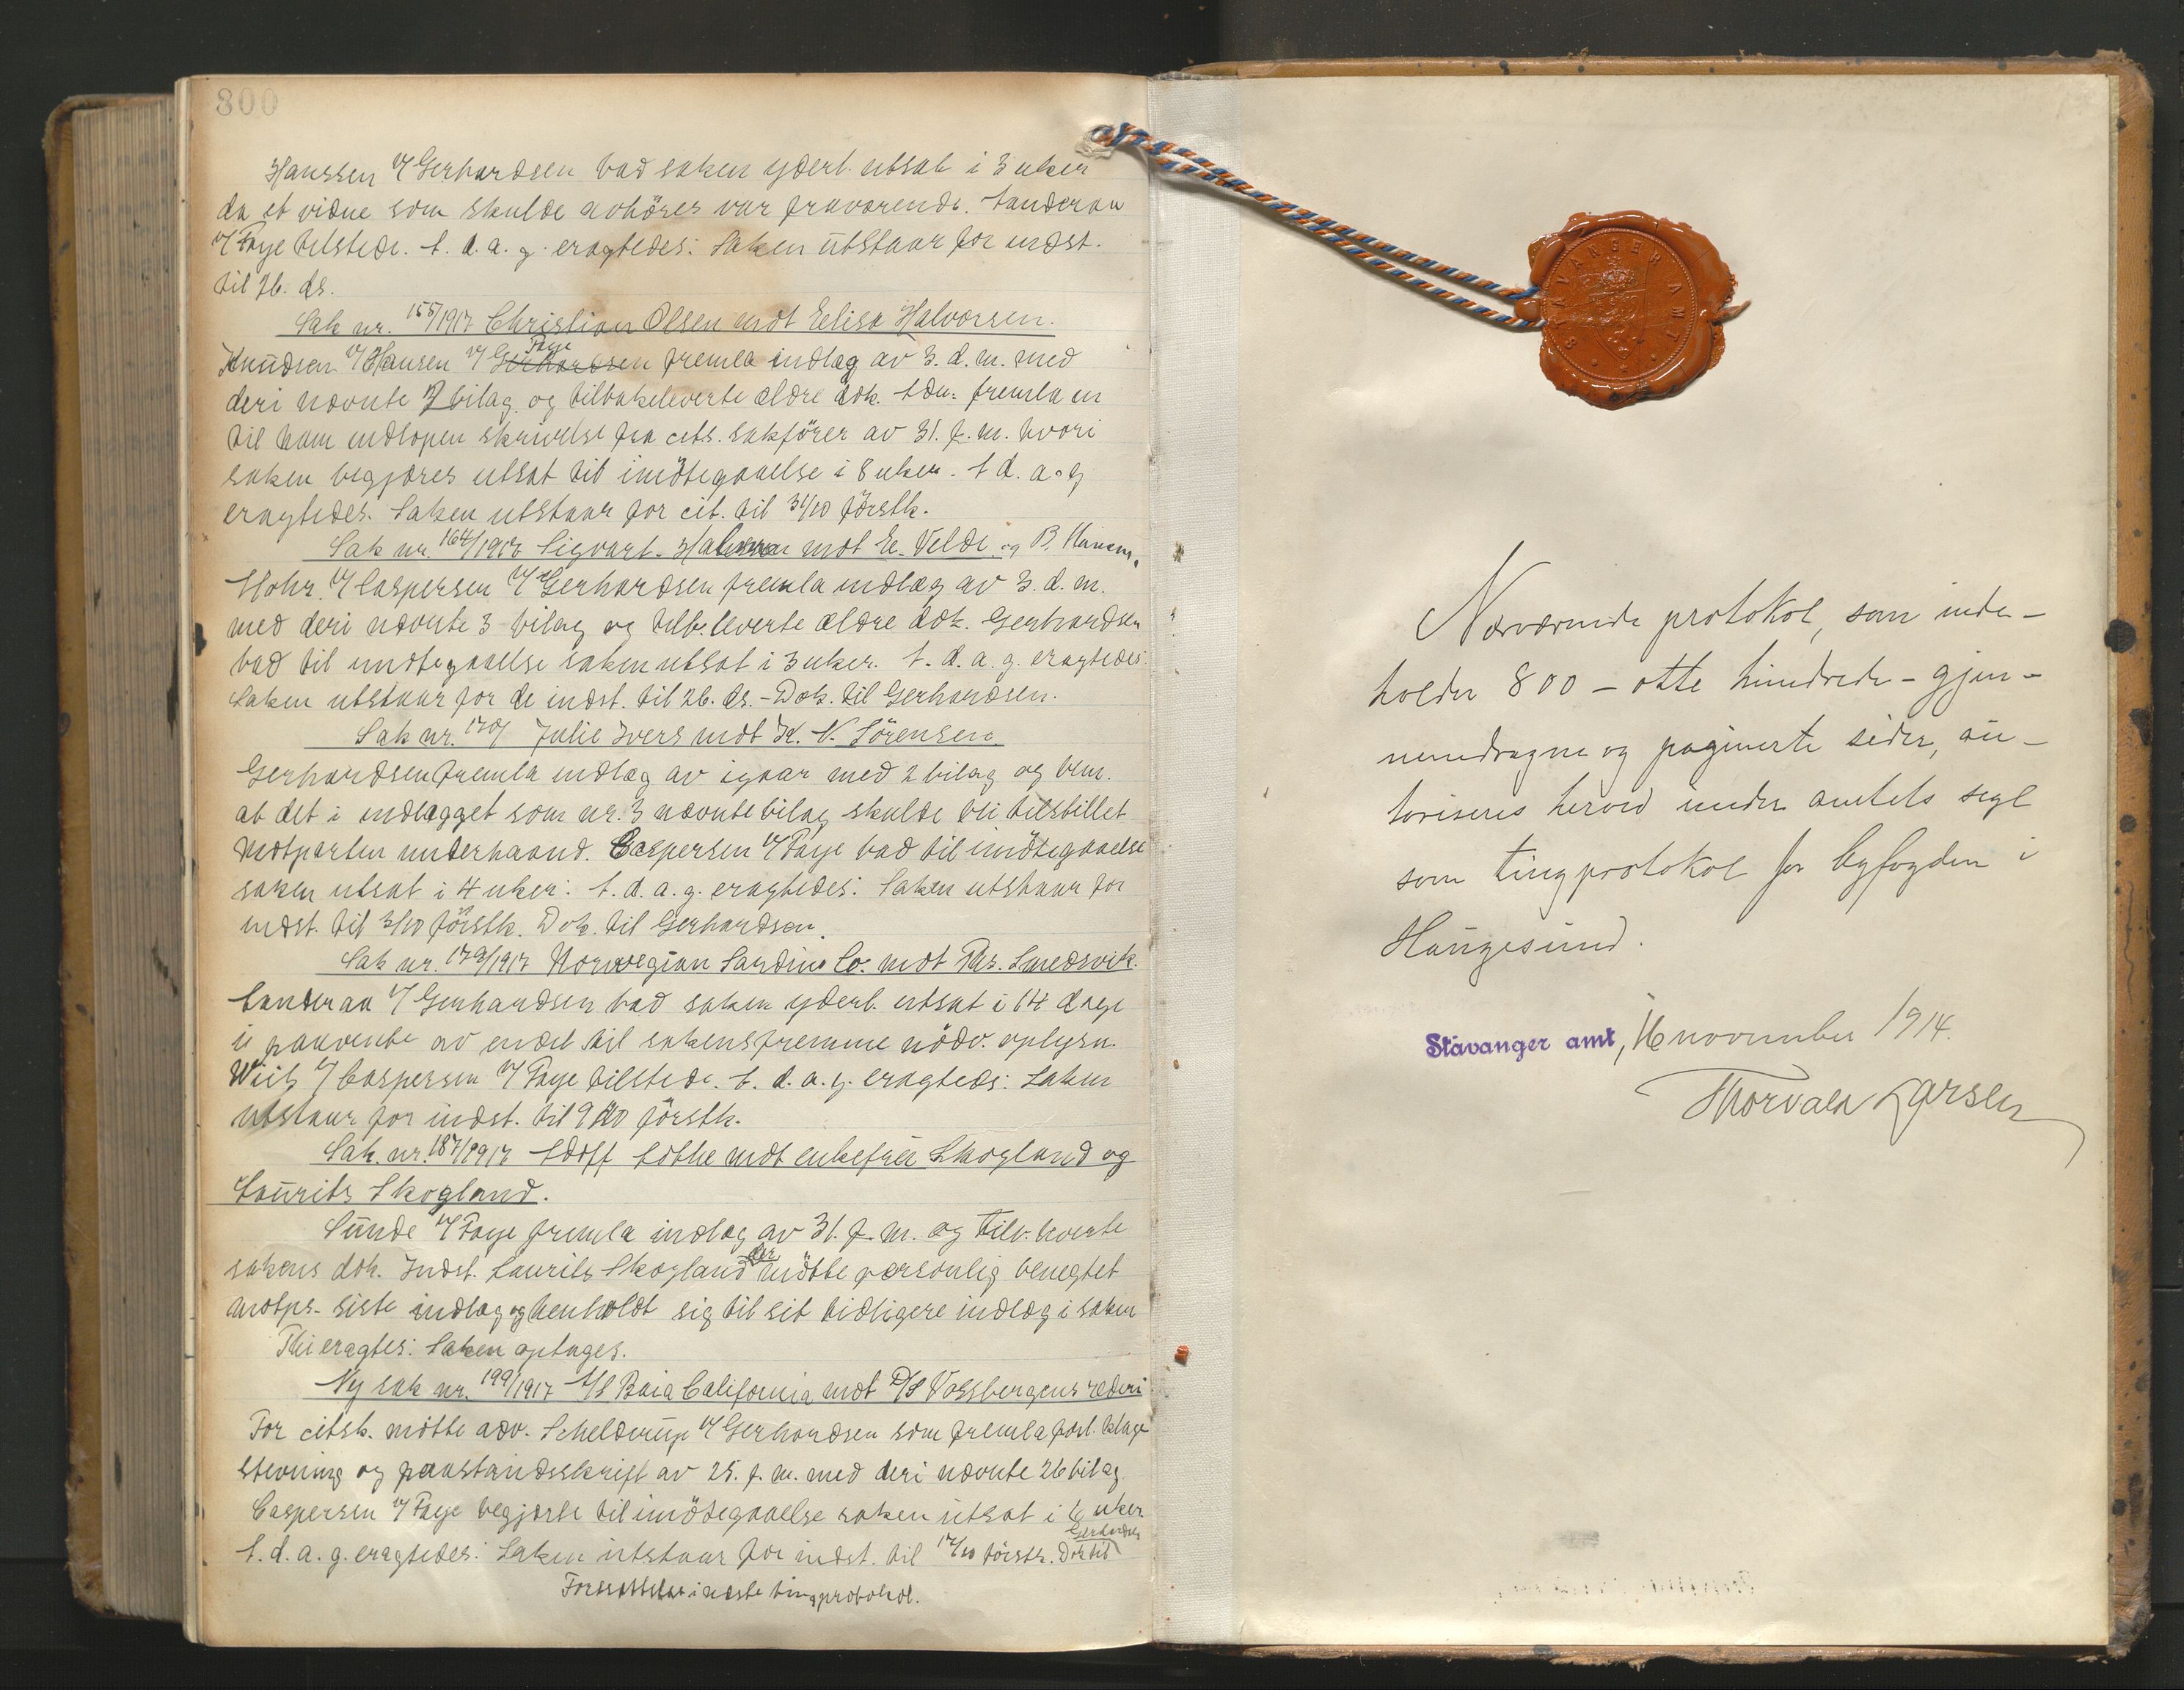 800
Hanssen v/ Gerhardsen bad saken yderl. utsat i 3 uker
da et vidne som skulde avhöres var fraværende. Landeraa
v/ Faye tilstede. t. d. a. g. eragtedes: Saken utstaar for indst.
til 26. ds.
Sak nr. 155/1917 Christian Olsen mot Elisa Halvorsen.
Knudsen v/ Hansen v/ Faye fremla indlæg av 3. d. m. med
deri nævnte 7 bilag og tilbakeleverte ældre dok. fremla en
til ham indlöpen skrivelse fra cits. sakförer av 31. f. m. hvori
saken begjæres utsat til imötegaaelse i 8 uker. t d. a. g
eragtedes. Saken utstaar for cit. til 31/10 förstk.
Sak nr. 164/1917 Sigvart Halvorsen mot E. Velde og B. Hansen.
Mohr v/ Caspersen v/ Gerhardsen fremla indlæg av 3. d. m.
med deri nævnte 3 bilag og tilb. leverte ældre dok. Gerhardsen
bad til imötegaaelse saken utsat i 3 uker. t. d. a. g. eragtedes
Saken utstaar for de indst. til 26. ds. - Dok. til Gerhardsen.
Sak nr. 170/ Julie Ivers mot K. N. Sörensen.
Gerhardsen fremla indlæg av igaar med 2 bilag og bem.
at det i indlægget som nr. 3 nævnte bilag skulde bli tilstillet
motparten underhaand. Caspersen v/ Faye bad til imötegaaelse
saken utsat i 4 uker. t. d. a. g. eragtedes: Saken utstaar for
indst. til 3/10 förstk. Dok. til Gerhardsen.
Sak nr. 179/1917 Norwegian Sardine Co. mot Ths. Smedsvik.
Landeraa v/ Gerhardsen bad saken yderl. utsat i 14 dage
i paavente av endel til sakens fremme nödv. oplysn.
Wiik v/ Caspersen v/ Faye tilstede. t. d. a. g. eragtedes: Saken
utstaar for indst. til 9/10 förstk.
Sak. nr. 187/1917 Adolf Lothe mot enkefru Skogland og
Laurits Skogland.
Sunde v/ Faye fremla indlæg av 31. f. m. og tilb. leverte
sakens dok. Indst. Laurits Skogland der mötte personlig benegtet
motps. siste indlæg og henholdt sig til sit tidligere indlæg i saken
Thi eragtes: Saken optages.
Ny sak nr. 199/1917 A/S Baia California mot D/S Vossbergens rederi
For citsk. mötte adv. Schelderup v/ Gerhardsen som fremla forl. klage
stevning og paastandsskrift av 25. f. m. med deri nævnte 26 bilag.
Caspersen v/ Faye begjærte til imötegaaelse saken utsat i 6 uker
t. d. a. g. eragtedes: Saken utstaar for indst. til 17/10 förstk. Dok til Gerhardsen
Fortsættelse i næste tingprotokol.
STAVANGER AMT
Nærværende protokol, som inde-
holder 800 - otte hundrede - gjen-
nemdragne og paginerte sider, au-
toriseres herved under amtets segl
som tingprotokol for byfogden i
Haugesund.
Stavanger amt, 16 november 1914.
Thorvald Larsen